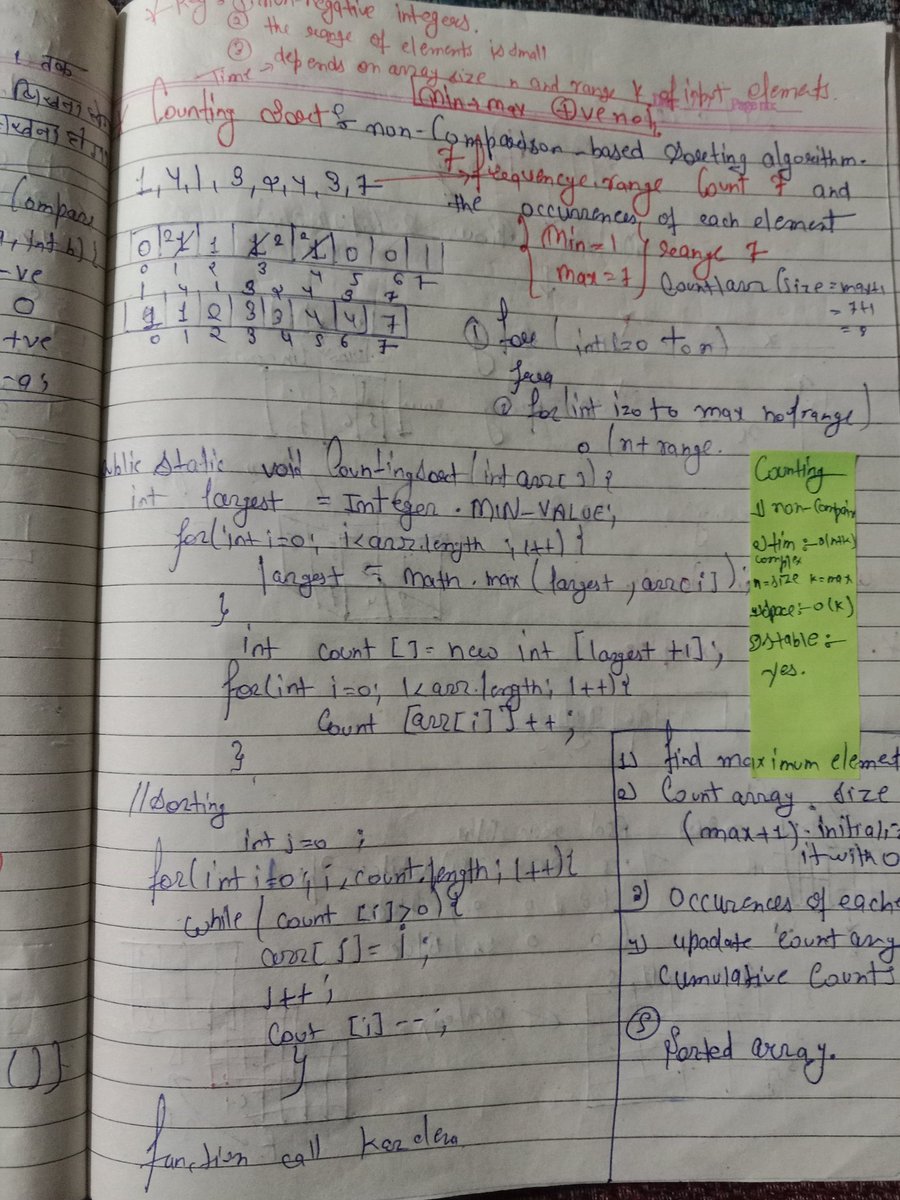 non-negative integers.
② the range of elements is small
③ depends on array size n and range k of input elements.
Time →
Min → max ⊕ve no.
Counting Sort: non-Comparison-based Sorting algorithm.
1, 4, 1, 3, 2, 4, 3, 7
frequency, range Count 7 and
the occurrences of each element
Min = 1
max = 7
range 7
Count arr (size = max+1
= 7+1
= 8
0 2 1 1 2 2 0 0 1
0 1 2 3 4 5 6 7
1 4 1 3 2 4 3 7
1 1 2 3 3 4 4 7
0 1 2 3 4 5 6 7
① for (int i=0 to n)
② for (int i=0 to max no range)
O (n + range.
public static void CountingSort (int arr[]) {
int largest = Integer.MIN_VALUE;
for(int i=0; i<arr.length; i++) {
largest = math.max (largest, arr[i]);
}
int count []= new int [largest +1];
for(int i=0; i<arr.length; i++){
Count [arr[i]]++;
}
//Sorting
int j=0 ;
for(int i=0; i, count.length; i++){
while (count [i]>0){
arr[j]= i;
j++;
Cout [i]--;
}
function call
Counting
1) non-Compair
2) tim :- O(n+k)
complex
n=size k=max
space:- O(k)
stable :-
yes.
1) find maximum elemet
2) Count array size
(max+1). initiali
it with 0
3) Occurences of each
4) upadate count
Cumulative Counts
⑤ Sorted array.
तक
Compare
-ve
0
+ve